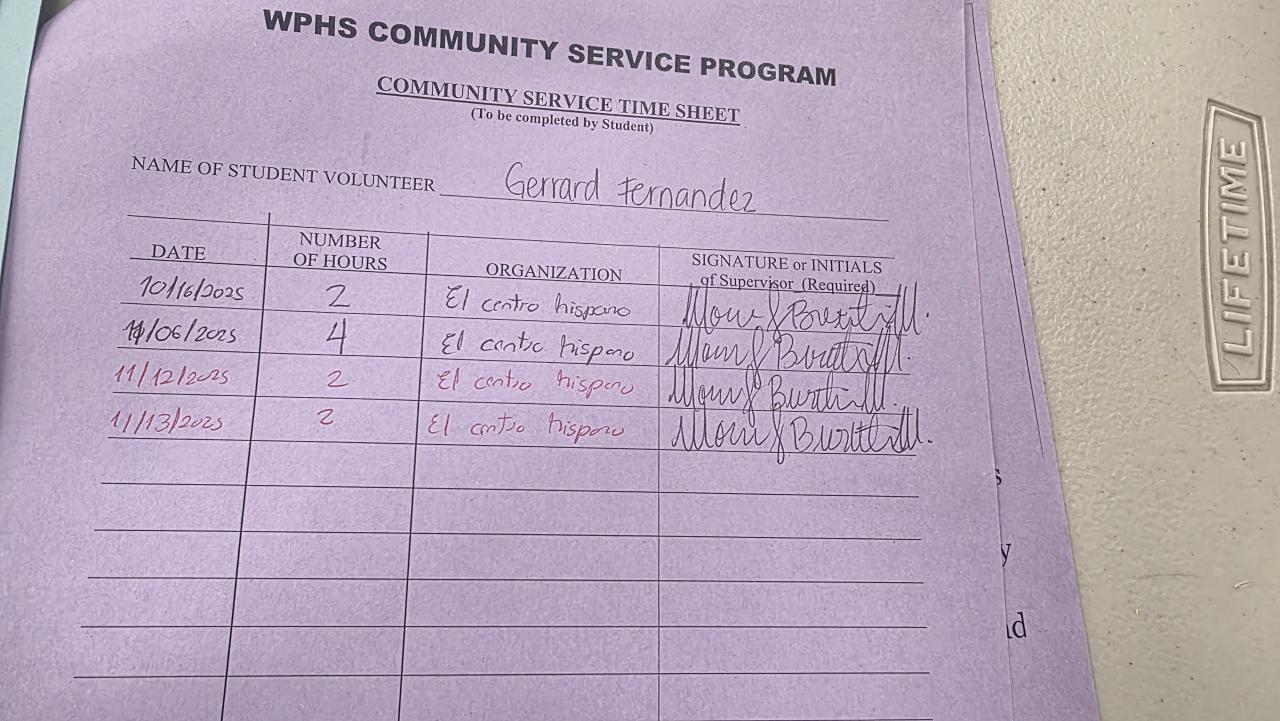 WPHS COMMUNITY SERVICE PROGRAM
COMMUNITY SERVICE TIME SHEET
(To be completed by Student)
NAME OF STUDENT VOLUNTEER Gerrard Fernandez
DATE NUMBER OF HOURS ORGANIZATION SIGNATURE or INITIALS of Supervisor (Required)
10/16/2025 2 El centro hispano
11/06/2025 4 El centro hispano
11/12/2025 2 El centro hispano
11/13/2025 2 El centro hispano
LIFETIME